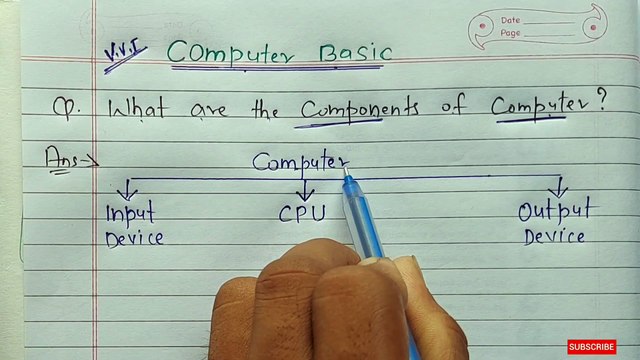 Date
Page
V.V.I Computer Basic
Q. What are the Components of Computer?
Ans→ Computer
Input Device
CPU
Output Device
SUBSCRIBE